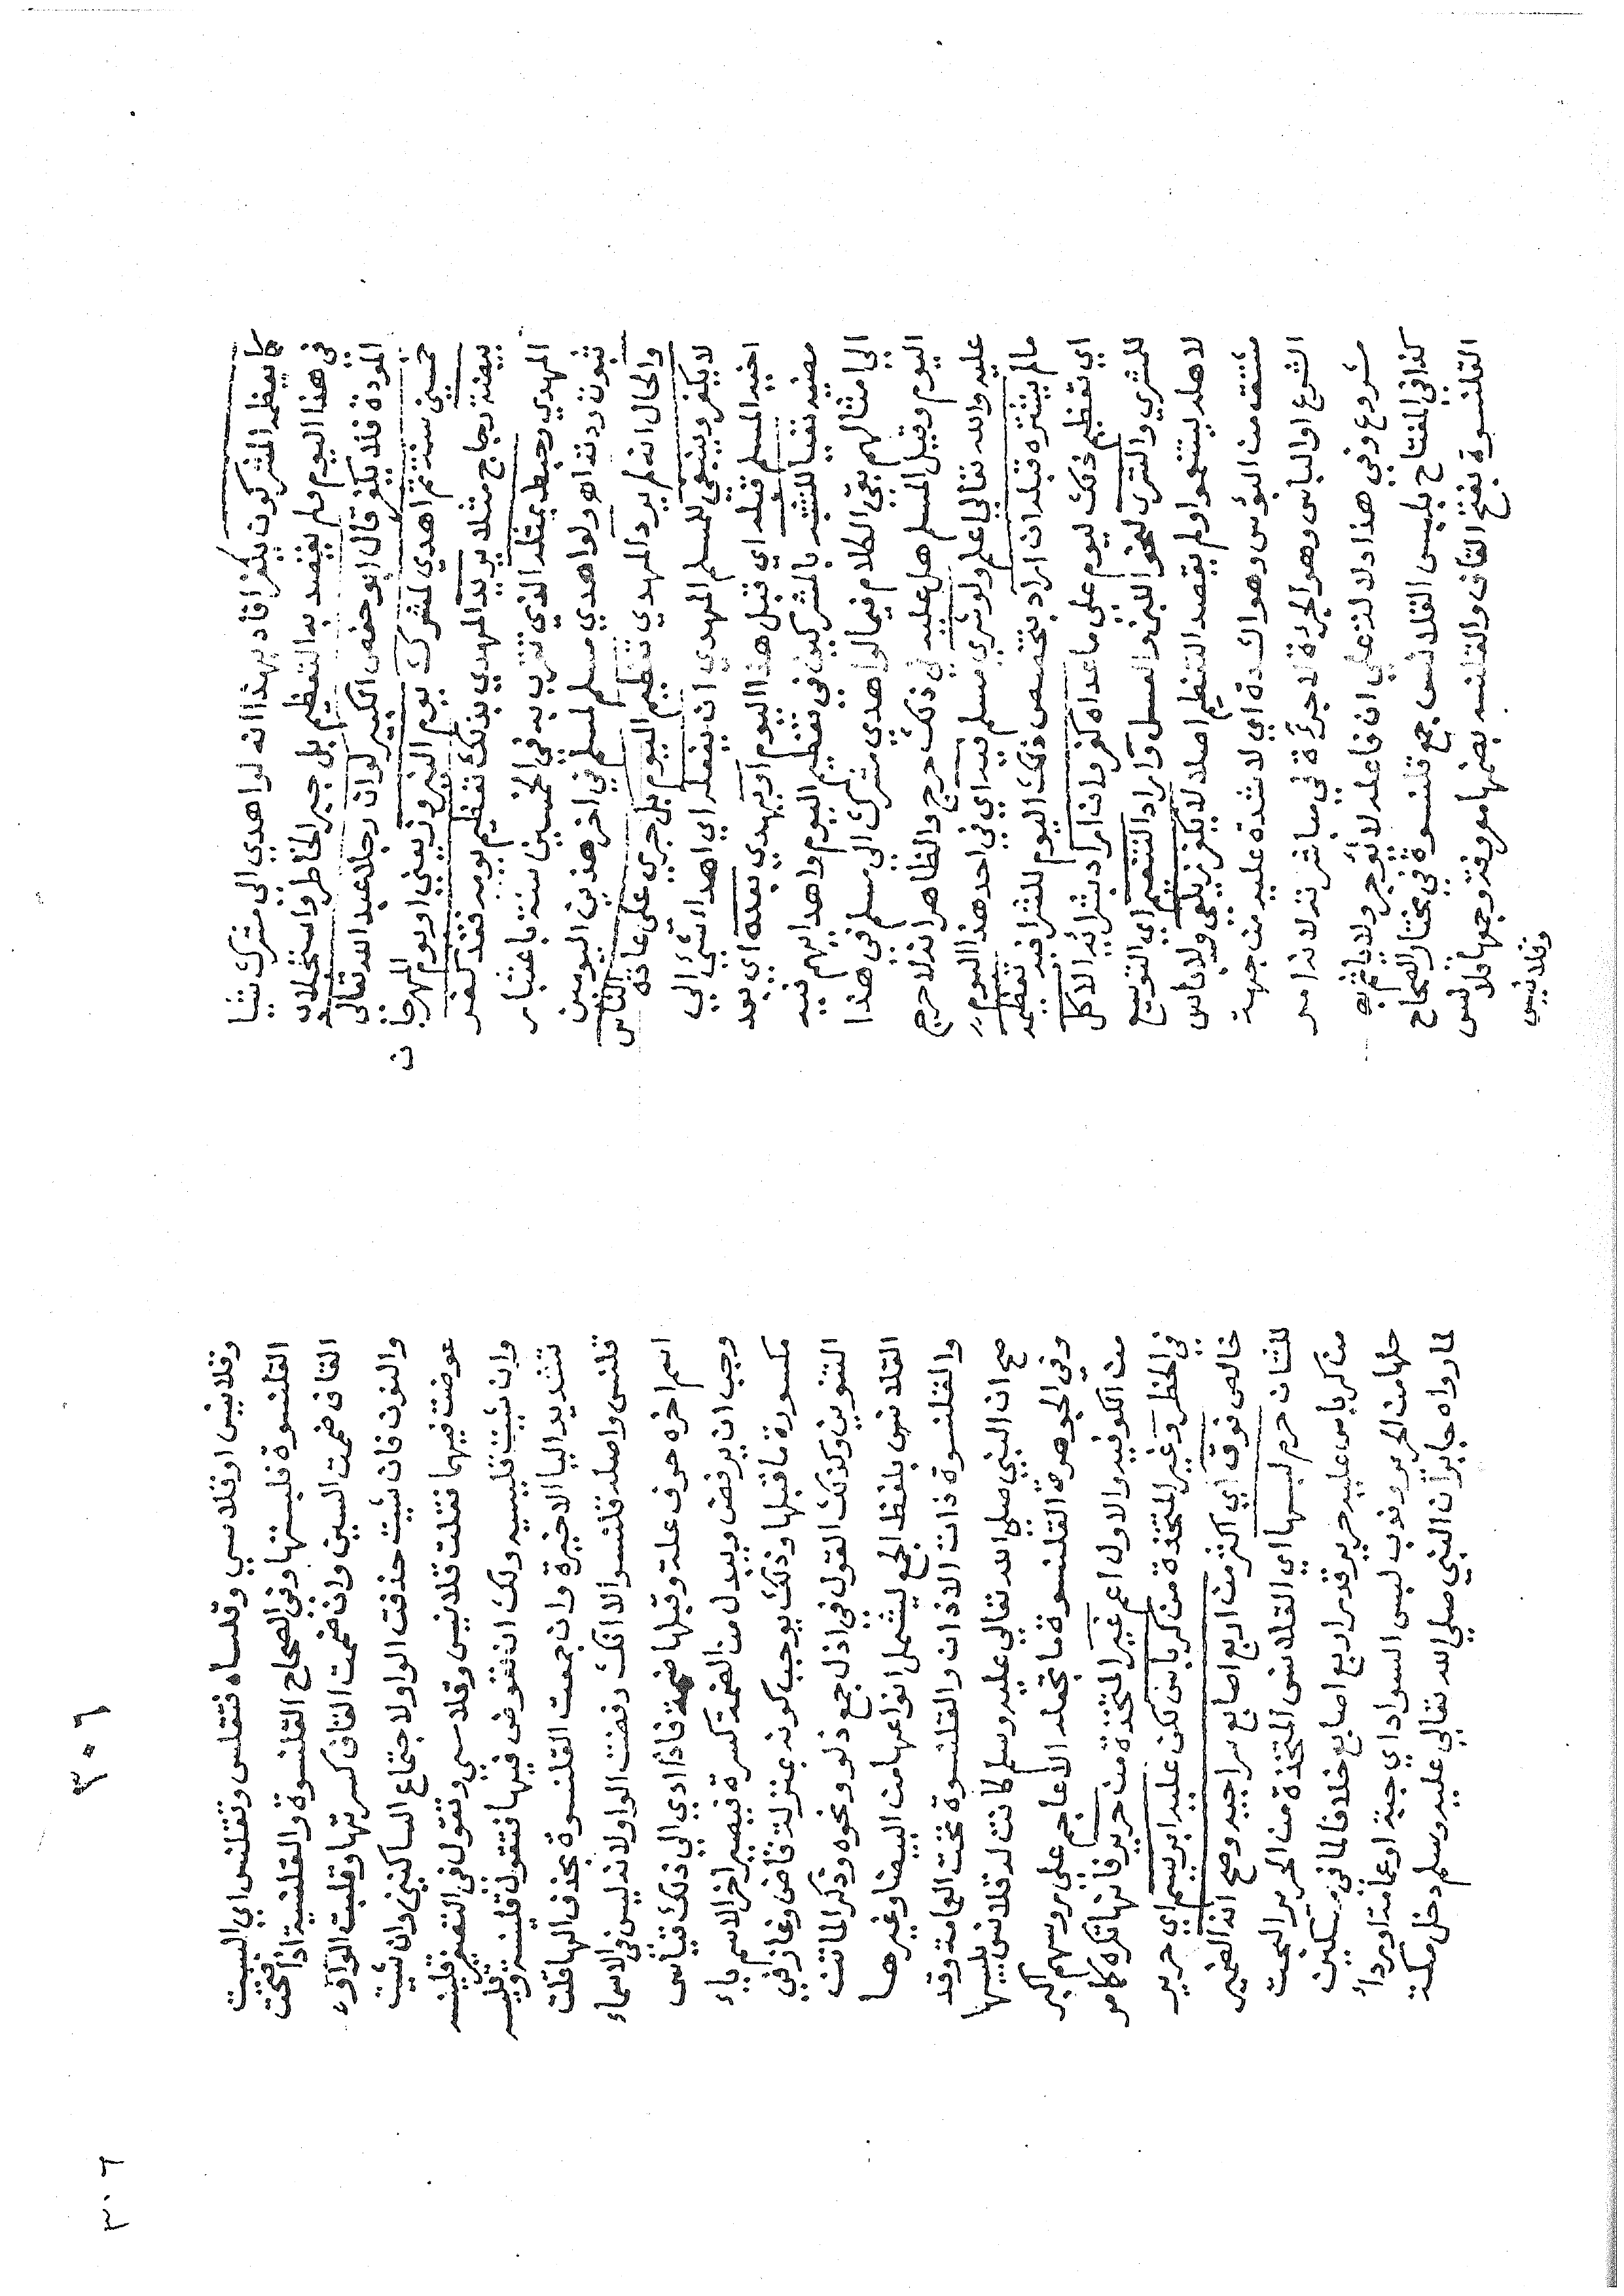 كما يعظمه المشركون يكفر افاد بهذا انه لو اهدي الى مشرك شيا
في هذا اليوم فلم يقصد به التعظيم بل جبر الخاطر واستجلاب
المودة فلا يكفر قال ابو حفص الكبير لو ان رجلا عبد الله تعالى
خمسين سنة ثم اهدي لمشرك يوم النيروز يعني او يوم المهرجان
بيضة دجاج مثلا يريد المهدي بذلك تعظيم يومه فقد كفر
المهدي وحبط عمله الذي تقرب به في الخمسين سنة باعتبار
ثبوت ردته اهـ ولو اهدي مسلم لمسلم في اخر هذين اليومين
والحال انه لم يرد المهدي تعظيم اليوم بل جري على عادة الناس
لا يكفر وينبغي للمسلم المهدي ان يفعله اي اهداء شئ الي
اخيه المسلم قبله اي قبل هذا اليوم او يهدي بعده اي بعد
مضيه نفيا للشبه بالمشركين في تعظيم اليوم واهدايهم فيه
الي امثالهم بقي الكلام فيما لو اهدي مشرك الي مسلم في هذا
اليوم وقبل المسلم هل عليه في ذلك حرج والظاهر انه لا حرج
عليه والله تعالي اعلم ولو شري مسلم فيه اي في احد هذا اليوم
ما لم يشتره قبله ان اراد بتخصص ذلك اليوم للشرا فيه تعظيمه
اي تعظيم ذلك اليوم على ما عداه كفر وان اراد بشرائه الاكل
للمشري والشرب لنحو اللبن والعسل واراد التنعم اي التوسع
لاهله ليتنعموا ولم يقصد التعظيم اصلا لا يكفر زيلعي ولا باس
مشتقه من البؤس وهو الشدة اي لا شدة عليه من جهة
الشرع او الباس وهو الجرءة لا جرءة في مباشرته لانه امر
مشروع وفي هذا دلالة علي ان فاعله لا يؤجر ولا ياثم به
كذا في المفتاح بلبس القلانس جمع قلنسوة في مختار الصحاح
القلنسوة بفتح القاف والقلنسيه بضمها معروفة وجمعها قلانس
وقلانيس
وقلانيس او قلاسي وقلساه فتقلس وتقلنس ابي البيت
القلنسوة فلبستها وفي الصحاح القلنسوة والقلنسية اذا فتحت
القاف ضممت السين وان ضممت القاف كسرتها وقلبت الواو
والنون فان شيت حذفت الواو لاجتماع الساكنين وان شيت
عوضت فيهما فقلت قلانيس وقلاسي وتقول في التصغير قلينسه
وان شيت قليسيه ولك ان تعوض فيها فتقول قلينيسه وقليسيه
تشديد اليا الاخيرة وان جمعت القلنسوة بحذف الها قلت
قلنس واصله قلنسو الا انك رفضت الواو لانه ليس في الاسماء
اسم اخره حرف علة وقبلها ضمة فاذا ادي الي ذلك قياس
وجب ان يرفض ويبدل من الضمة كسرة فيصير اخر الاسم ياء
مكسورة ما قبلها وذلك يوجب كونه بمنزلة قاض وغاز في
التنوين وكذلك القول في ادل جمع دلو ونحوه وذكر الماتن
القلانس بلفظ الجمع ليشمل انواعها من البيضا وغيرها
والقلنسوة ذات الاذان والقلنسوة تحت العمامة وقد
صح ان النبي صلى الله تعالي عليه وسلم كانت له قلانس يلبسها
وفي الجوهرة القلنسوة ما تجعله الاعاجم على رؤسهم اكبر
من الكوفيه والاول اعم غير المتخذة من حرير فانها تكره كما مر
في الحظر وغير المتخذة من كرباس لكن عليه ابريسم اي حرير
خالص فوق اي اكثر من اربع اصابع سراجيه وصح انه الضمير
للشان حرم لبسها اي القلانس المتخذة من الحرير البحت
من كرباس عليه حرير قدر اربع اصابع خلافا لما في مسكين
حلها من الحرير وندب لبس السواد اي جبة او عمامة او رداء
لما رواه جابر ان النبي صلي الله تعالي عليه وسلم دخل مكة
٣٠٦
٣٠٦